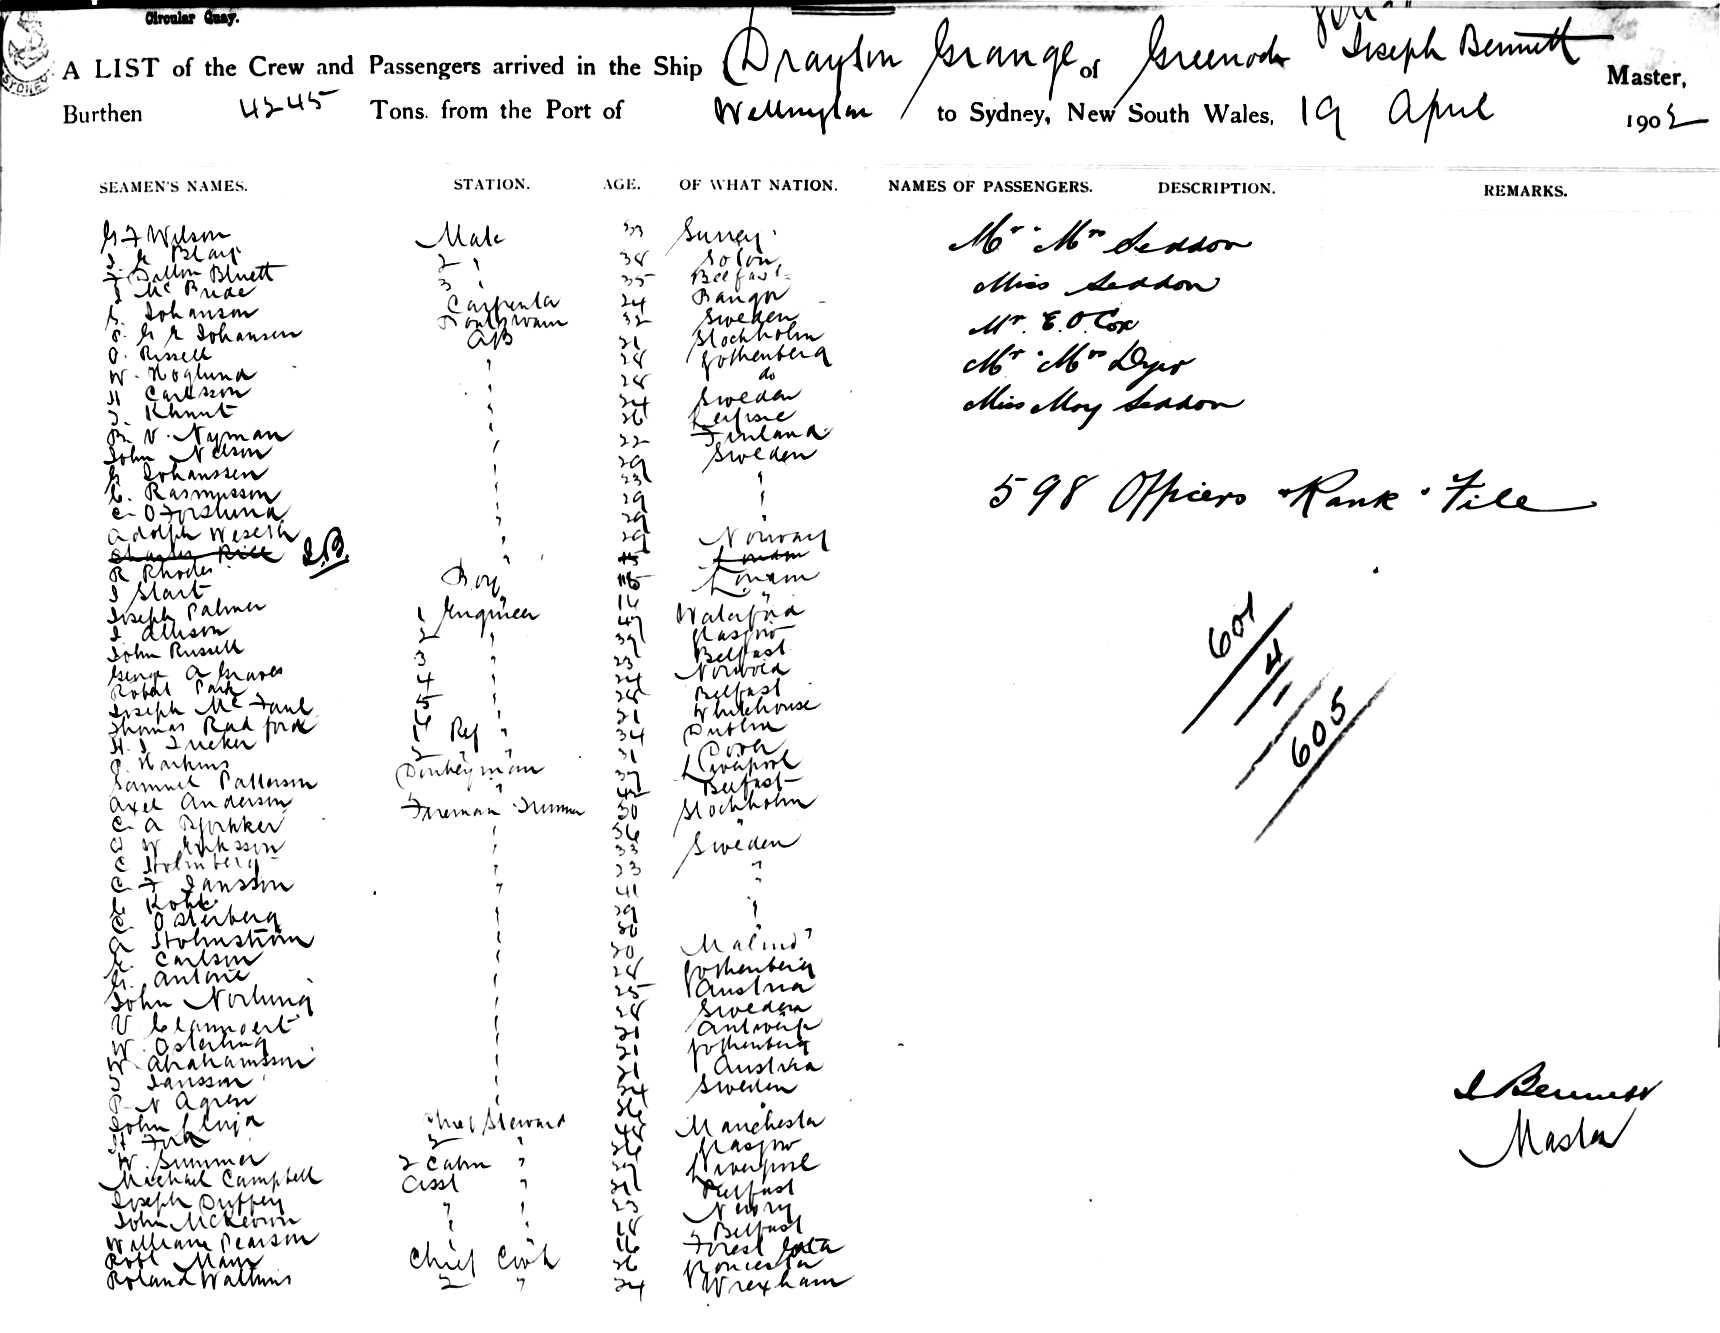 Circular Quay.
A LIST of the Crew and Passengers arrived in the Ship Drayton Grange of Greenock Joseph Bennett Master,
Burthen 4245 Tons. from the Port of Wellington to Sydney, New South Wales, 19 April 1902
SEAMEN'S NAMES. STATION. AGE. OF WHAT NATION. NAMES OF PASSENGERS. DESCRIPTION. REMARKS.
G F Wilson Mate 53 Surrey Mr & Mrs Seddon
Blair 2 " 38
F Dillon Bluett 3 " 35 Belfast Miss Seddon
J McBride Carpenter 24 Bangor
G. Johanson 32 Sweden Mr. E. O. Cox
G E Johansen AB 21 Stockholm
O. Rissell " 28 Gothenberg Mr & Mrs Dyer
W. Hoglund 28 do
H Carlsson " 24 Sweden Miss May Seddon
J. Khnut " 26
V. Nyman " 22 Finland
John Nelson " 29 Sweden
G Johanssen " 23 "
C. Rasmusson " 29 " 598 Officers & Rank & File
C. O Forslund " 29 "
Adolph " 29 Norway
J.B.
R Rhodes Boy London
J Start " 16 "
Joseph Palmer 1 Engineer 47 Waterford
J Allison 2 " 39 Glasgow
John Russell 3 " 23 Belfast
George A Graves 4 " 24 Norwood
Robert Park 5 " 28 Belfast
Joseph McFaul 6 " 21 Whitehouse
Thomas Radford 1 Ref " 34 Dublin
H. J Tucker 2 " " 31 Dover
Harkins Donkeyman 37 Liverpool
Samuel Patterson " 42 Belfast
Axel Anderson Fireman Trimmer 30 Stockholm
C. A " 36 "
W Eriksson " 33 Sweden
C Holmberg " 23 "
C. F Jansson " 41 "
" 29 "
C. Osterberg " 30 "
A Holmstrom " 30
G. Carlson " 28 Gothenberg
G. Antoni " 25 Austria
John Norlung " 28 Sweden
V " 21 Antwerp
W. Osterling " 21 Gothenberg
W Abrahamsson " 21 Austria
J Jansson " 24 Sweden
P. N Agren " 36 "
John Chief Steward 48 Manchester
H 2 " 26 Glasgow
W. Summer 2 Cabin " 29 Liverpool
Michael Campbell Asst " 21 Belfast
Joseph Duffey " " 23 Newry
John McKeown " " 18 Belfast
William Pearson " " 16 Forest Gate
Robt Mann Chief Cook 26
Roland Watkins 2 " 24 Wrexham
601
4
605
J Bennett
Master